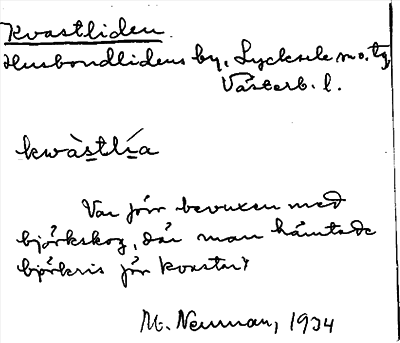 Kvastliden.
Husbondlidens by, Lycksele m. o. tg,
Västerb. l.
kwàstlía
Var förr bevuxen med
björkskog, där man hämtade
björkris för kvastar.
M. Neuman, 1934